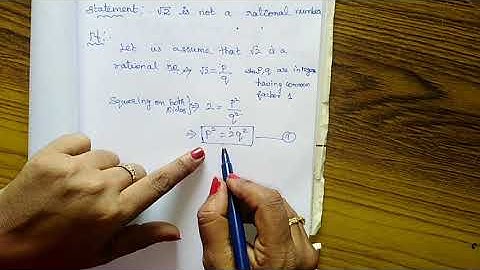 Statement: √2 is not a rational number
Pf:
Let us assume that √2 is a
rational no ⇒ √2 = p/q where p, q are integers
having common
factor 1
Squaring on both sides} ⇒ 2 = p²/q²
⇒ p² = 2q² — ①